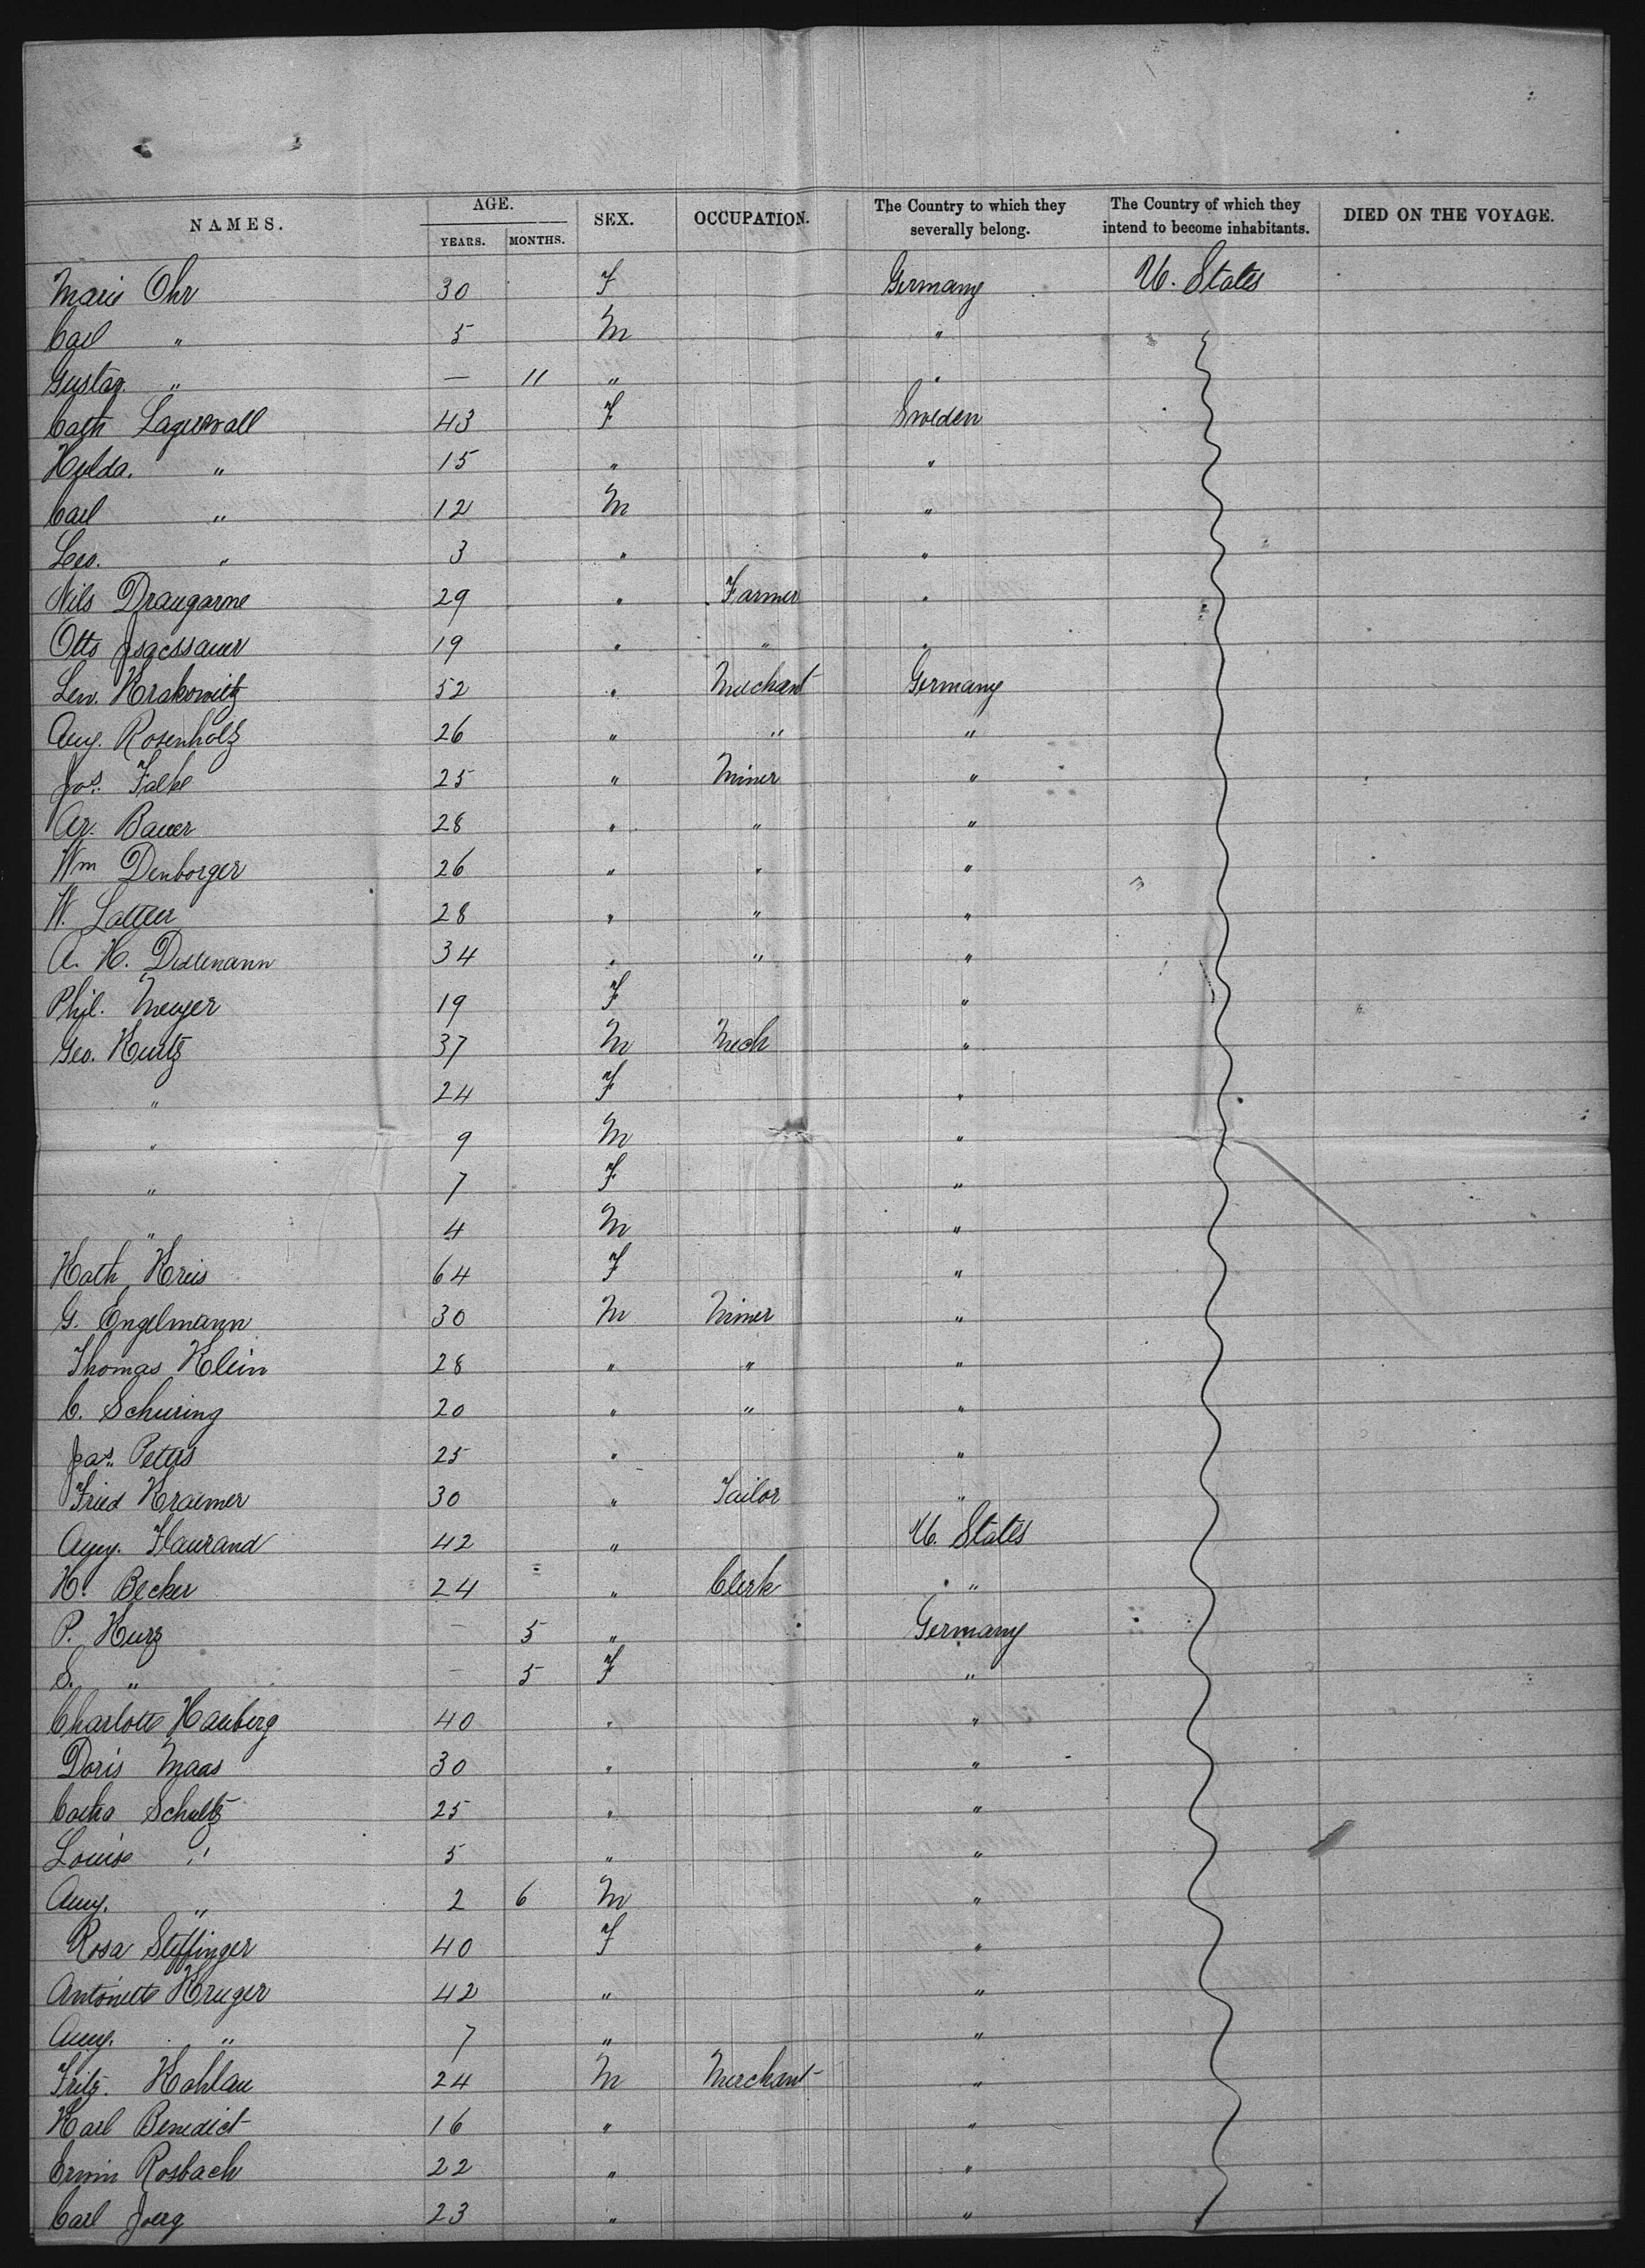 NAMES. AGE. SEX. OCCUPATION. The Country to which they severally belong. The Country of which they intend to become inhabitants. DIED ON THE VOYAGE.
YEARS. MONTHS.
Marie Ohr 30 F Germany U. States
Carl " 5 M "
Gustav " — 11 " "
Cath Lagerwall 43 F Sweden
Hulda. " 15 " "
Carl " 12 M "
Leo. " 3 " "
Nils Draugarne 29 " Farmer "
Otto 19 " " "
Lew. Krakowitz 52 " Merchant Germany
Aug. Rosenholz 26 " " "
Jos. Falke 25 " Miner "
Ar. Bauer 28 " " "
Wm Denborger 26 " " "
W. 28 " " "
A. H. 34 " " "
Phil. Meyer 19 F "
Geo. Kurtz 37 M Mech "
" 24 F "
" 9 M "
" 7 F "
" 4 M "
Kath Kreis 64 F "
G. Engelmann 30 M Miner "
Thomas Klein 28 " " "
C. Schuring 20 " " "
Jas. Peters 25 " "
Fried Kraemer 30 " Tailor "
Aug. Flaurand 42 " U. States
H. Becker 24 " Clerk "
P. Kurz — 5 " Germany
S. " — 5 F "
Charlotte Hauberg 40 " "
Doris Maas 30 " "
Catha Schultz 25 " "
Louise " 5 " "
Aug. " 2 6 M "
Rosa Steffinger 40 F "
Antoinette Kruger 42 " "
Aug. " 7 " "
Fritz. Kohlau 24 M Merchant "
Karl Benedict 16 " "
Erwin Rosbach 22 " "
Carl Joerg 23 " "